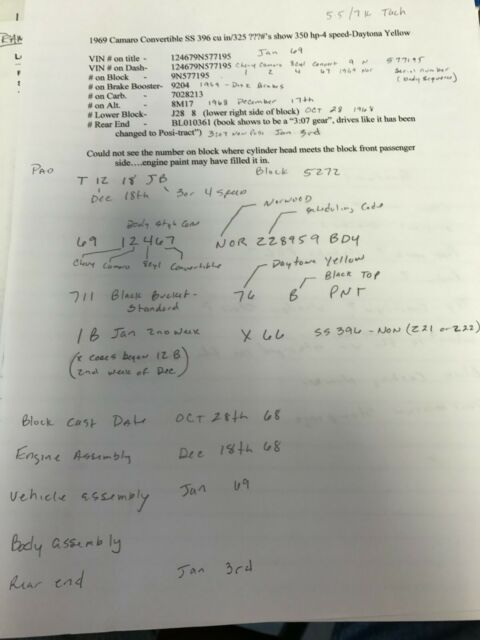 55/7K Tach
1969 Camaro Convertible SS 396 cu in/325 ???#'s show 350 hp-4 speed-Daytona Yellow
Jan 69
VIN # on title - 124679N577195
VIN # on Dash- 124679N577195 Chevy Camaro 8cyl Convert 9 N 577195
# on Block - 9N577195 1 2 4 67 1969 Nor Serial number
# on Brake Booster- 9204 1969 - Disc Brakes (body sequence)
# on Carb. - 7028213
# on Alt. - 8M17 1968 December 17th
# Lower Block- J28 8 (lower right side of block) OCT 28 1968
# Rear End - BL010361 (book shows to be a "3:07 gear", drives like it has been
changed to Posi-tract") 3:07 Non Posi Jan 3rd
Could not see the number on block where cylinder head meets the block front passenger
side….engine paint may have filled it in.
PAD
T 12 18 JB Block 5272
Dec 18th 3 or 4 speed
Norwood
Body Style Conv Scheduling Code
69 12467 NOR 228959 BDY
Chevy Camaro 8cyl Convertible
Daytona Yellow
Black Top
711 Black Bucket- 76 B PNT
Standard
1B Jan 2nd week X 66 SS 396 - NON (Z21 or Z22)
(x codes began 12 B
2nd week of Dec)
Block Cast Date OCT 28th 68
Engine Assembly Dec 18th 68
Vehicle assembly Jan 69
Body assembly
Rear end Jan 3rd